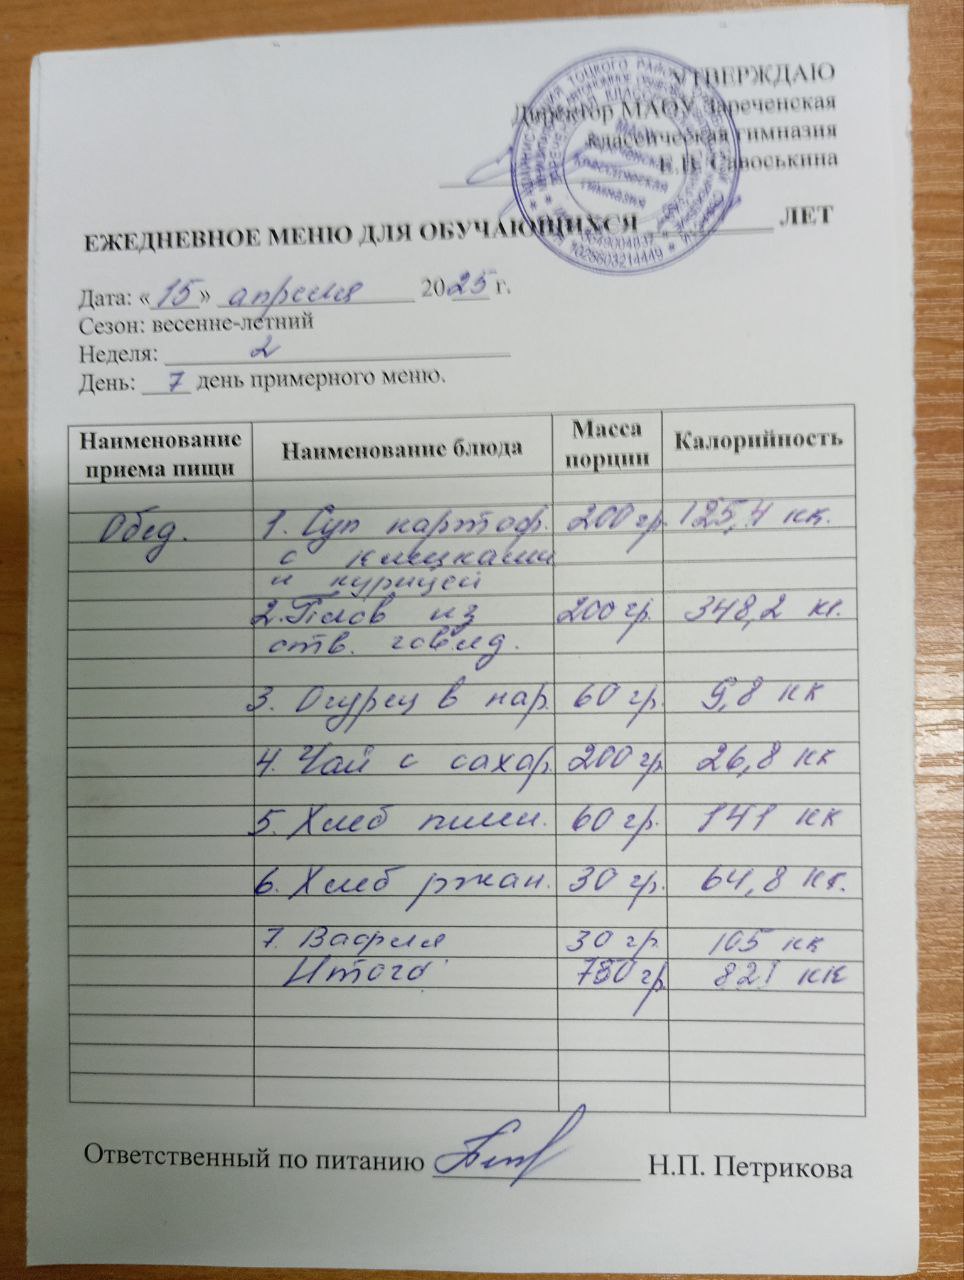 УТВЕРЖДАЮ
Директор МАОУ Зареченская
классическая гимназия
Е.П. Савоськина
ЕЖЕДНЕВНОЕ МЕНЮ ДЛЯ ОБУЧАЮЩИХСЯ __________ ЛЕТ
Дата: «15» апреля 2025 г.
Сезон: весенне-летний
Неделя: 2
День: 7 день примерного меню.
Наименование приема пищи Наименование блюда Масса порции Калорийность
Обед. 1. Суп картоф. 200 гр. 125,4 кк.
с клецками
и курицей
2. Плов из 200 гр. 348,2 кк.
отв. говяд.
3. Огурец в нар. 60 гр. 9,8 кк
4. Чай с сахар. 200 гр. 26,8 кк
5. Хлеб пшен. 60 гр. 141 кк
6. Хлеб ржан. 30 гр. 64,8 кк.
7. Вафля 30 гр 105 кк
Итого 780 гр. 821 кк
Ответственный по питанию Н.П. Петрикова
МАОУ
Зареченская
классическая
гимназия
1025603214449